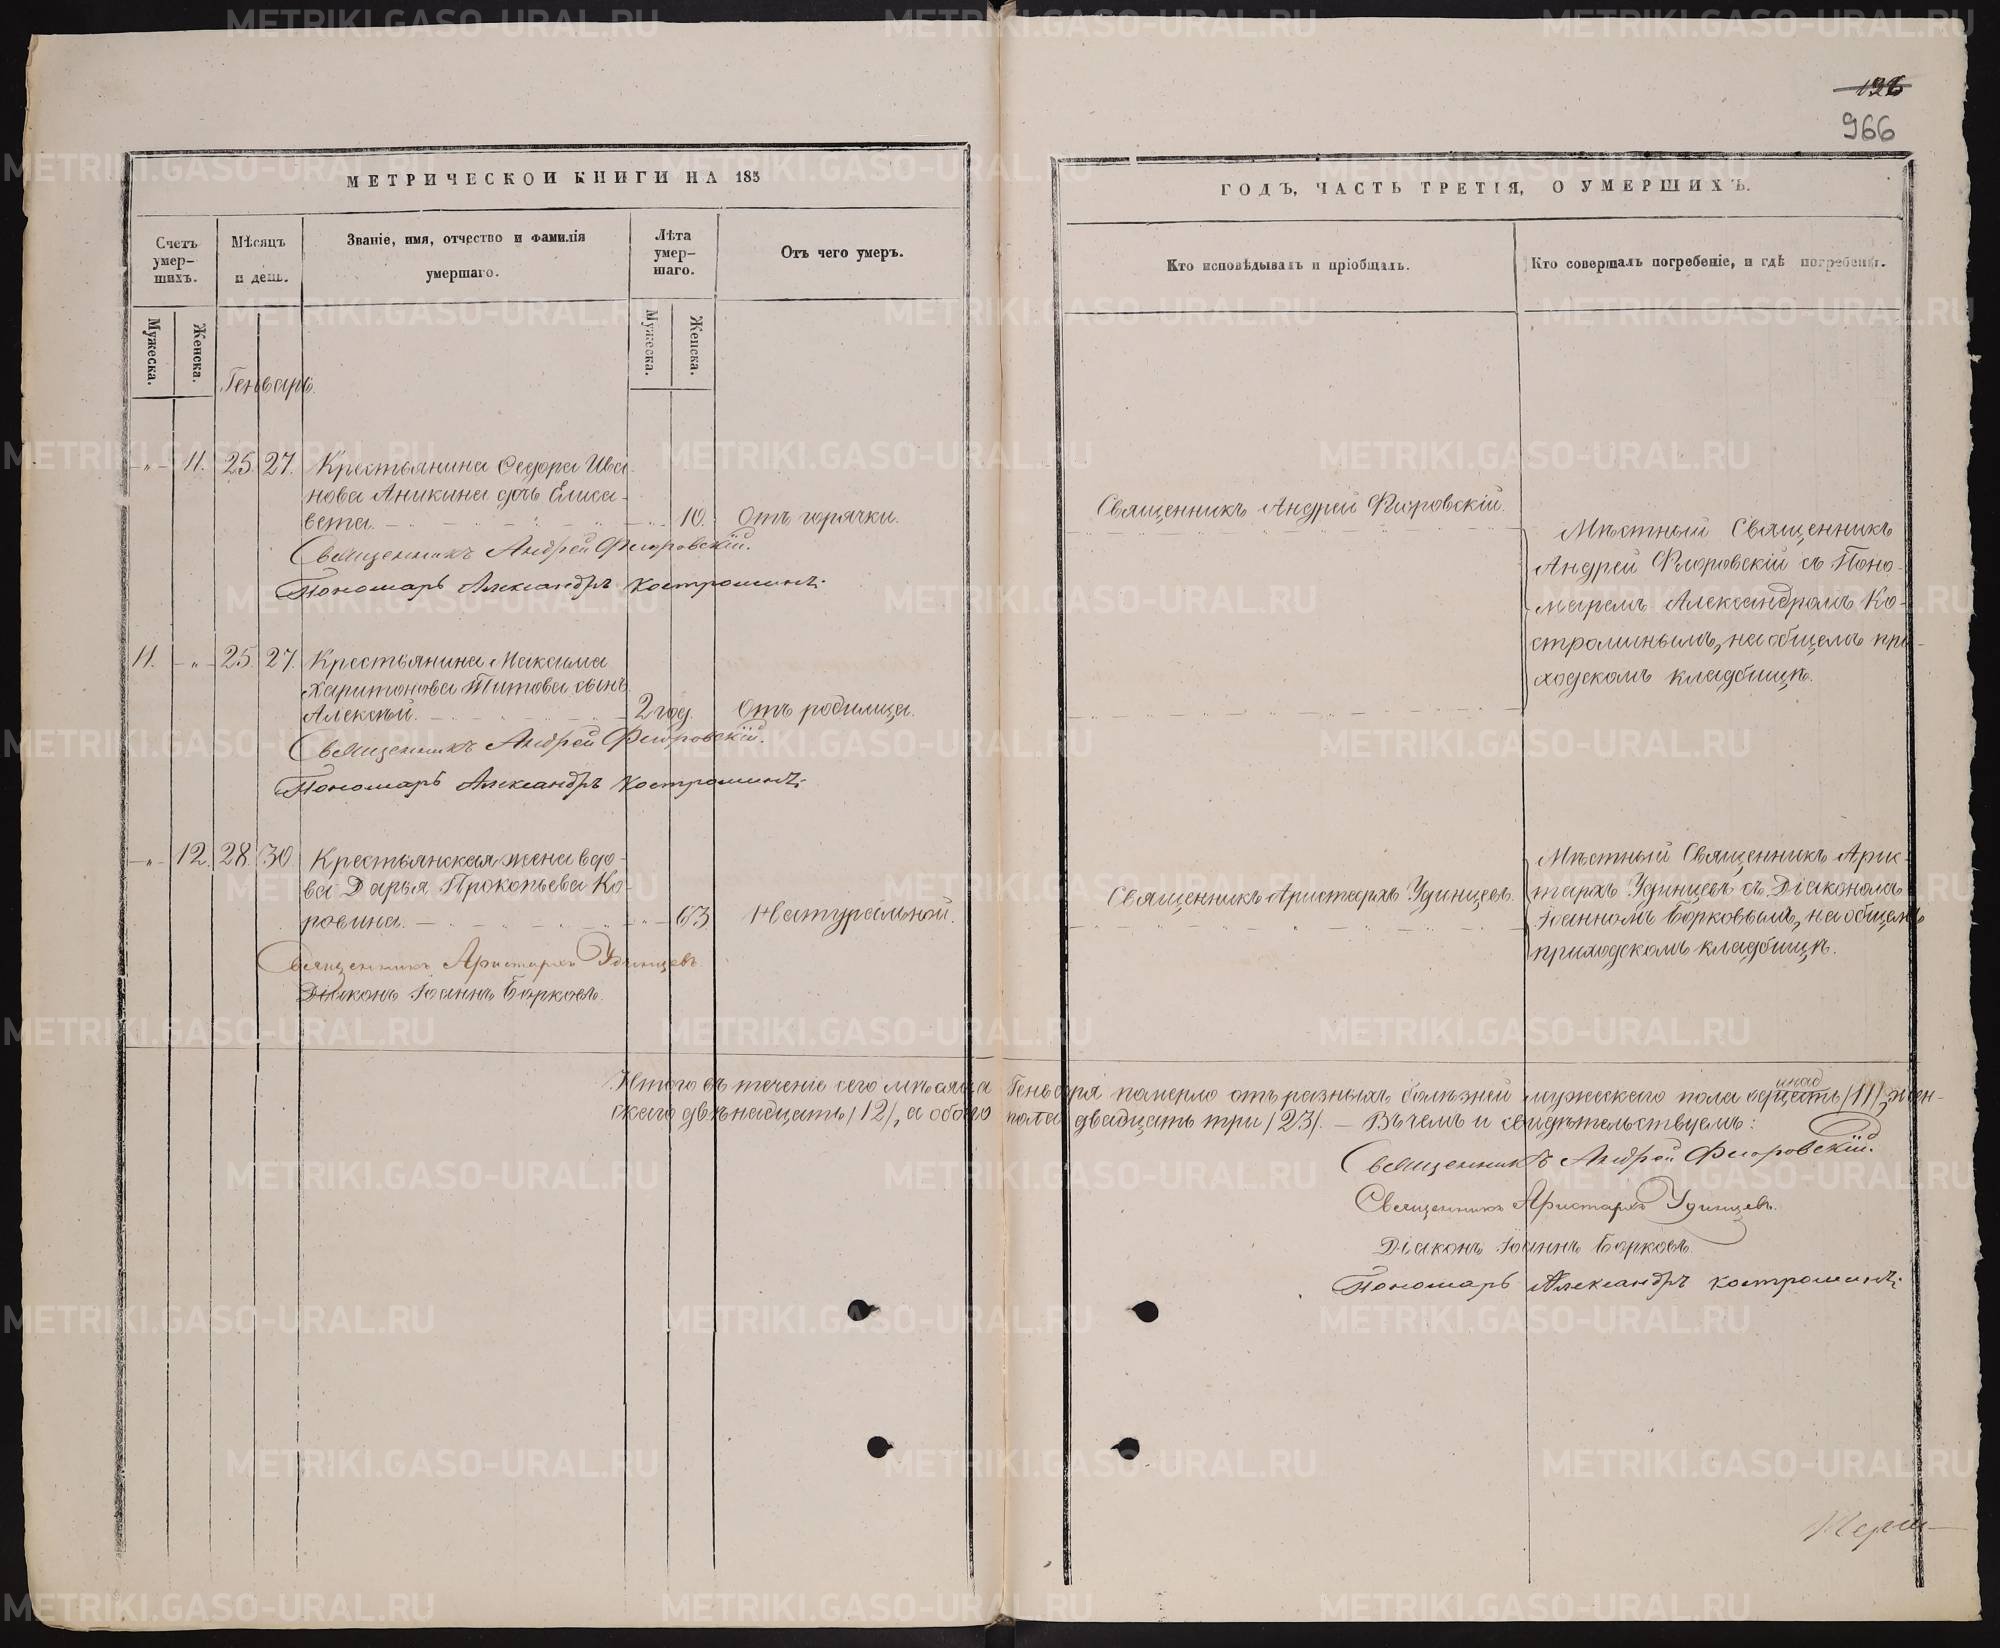 126
966
МЕТРИЧЕСКОЙ КНИГИ НА 185
ГОДЪ, ЧАСТЬ ТРЕТІЯ, О УМЕРШИХЪ.
Счетъ умер-
шихъ.
Мѣсяцъ
и день.
Званіе, имя, отчество и фамилія
умершаго.
Лѣта
умер-
шаго.
Отъ чего умеръ.
Кто исповѣдывалъ и пріобщалъ.
Кто совершалъ погребеніе, и гдѣ погребены.
Мужеска.
Женска.
Мужеска.
Женска.
Генварь.
-"- 11. 25. 27. Крестьянина Ѳедора Ива-
нова Аникина дочь Елиса-
вета. 10. Отъ горячки.
Священникъ Андрей Флоровскій.
Священникъ Андрей Флоровскій.
Пономарь Александръ Костроминъ.
Мѣстный Священникъ
Андрей Флоровскій съ Поно-
маремъ Александромъ Ко-
строминымъ, на общемъ при-
ходскомъ кладбищѣ.
11. -"- 25. 27. Крестьянина Максима
Харитонова Титова сынъ
Алексѣй. 2 год. Отъ родимца.
Священникъ Андрей Флоровскій.
Пономарь Александръ Костроминъ.
-"- 12. 28. 30. Крестьянская жена вдо-
ва Дарья Прокопьева Ко-
ровина. 63 Натуральной.
Священникъ Аристархъ Удинцевъ.
Священникъ Аристархъ Удинцевъ.
Діаконъ Іоаннъ Борковъ.
Мѣстный Священникъ Арис-
тархъ Удинцевъ съ Діакономъ
Іоанномъ Борковымъ, на общемъ
приходскомъ кладбищѣ.
Итого въ теченіе сего мѣсяца Генваря померло отъ разныхъ болѣзней мужескаго пола одинадцать /11/, жен-
скаго двѣнадцать /12/, а обоего пола двадцать три /23/. — Въ чемъ и свидѣтельствуемъ:
Священникъ Андрей Флоровскій.
Священникъ Аристархъ Удинцевъ.
Діаконъ Іоаннъ Борковъ.
Пономарь Александръ Костроминъ.
METRIKI.GASO-URAL.RU